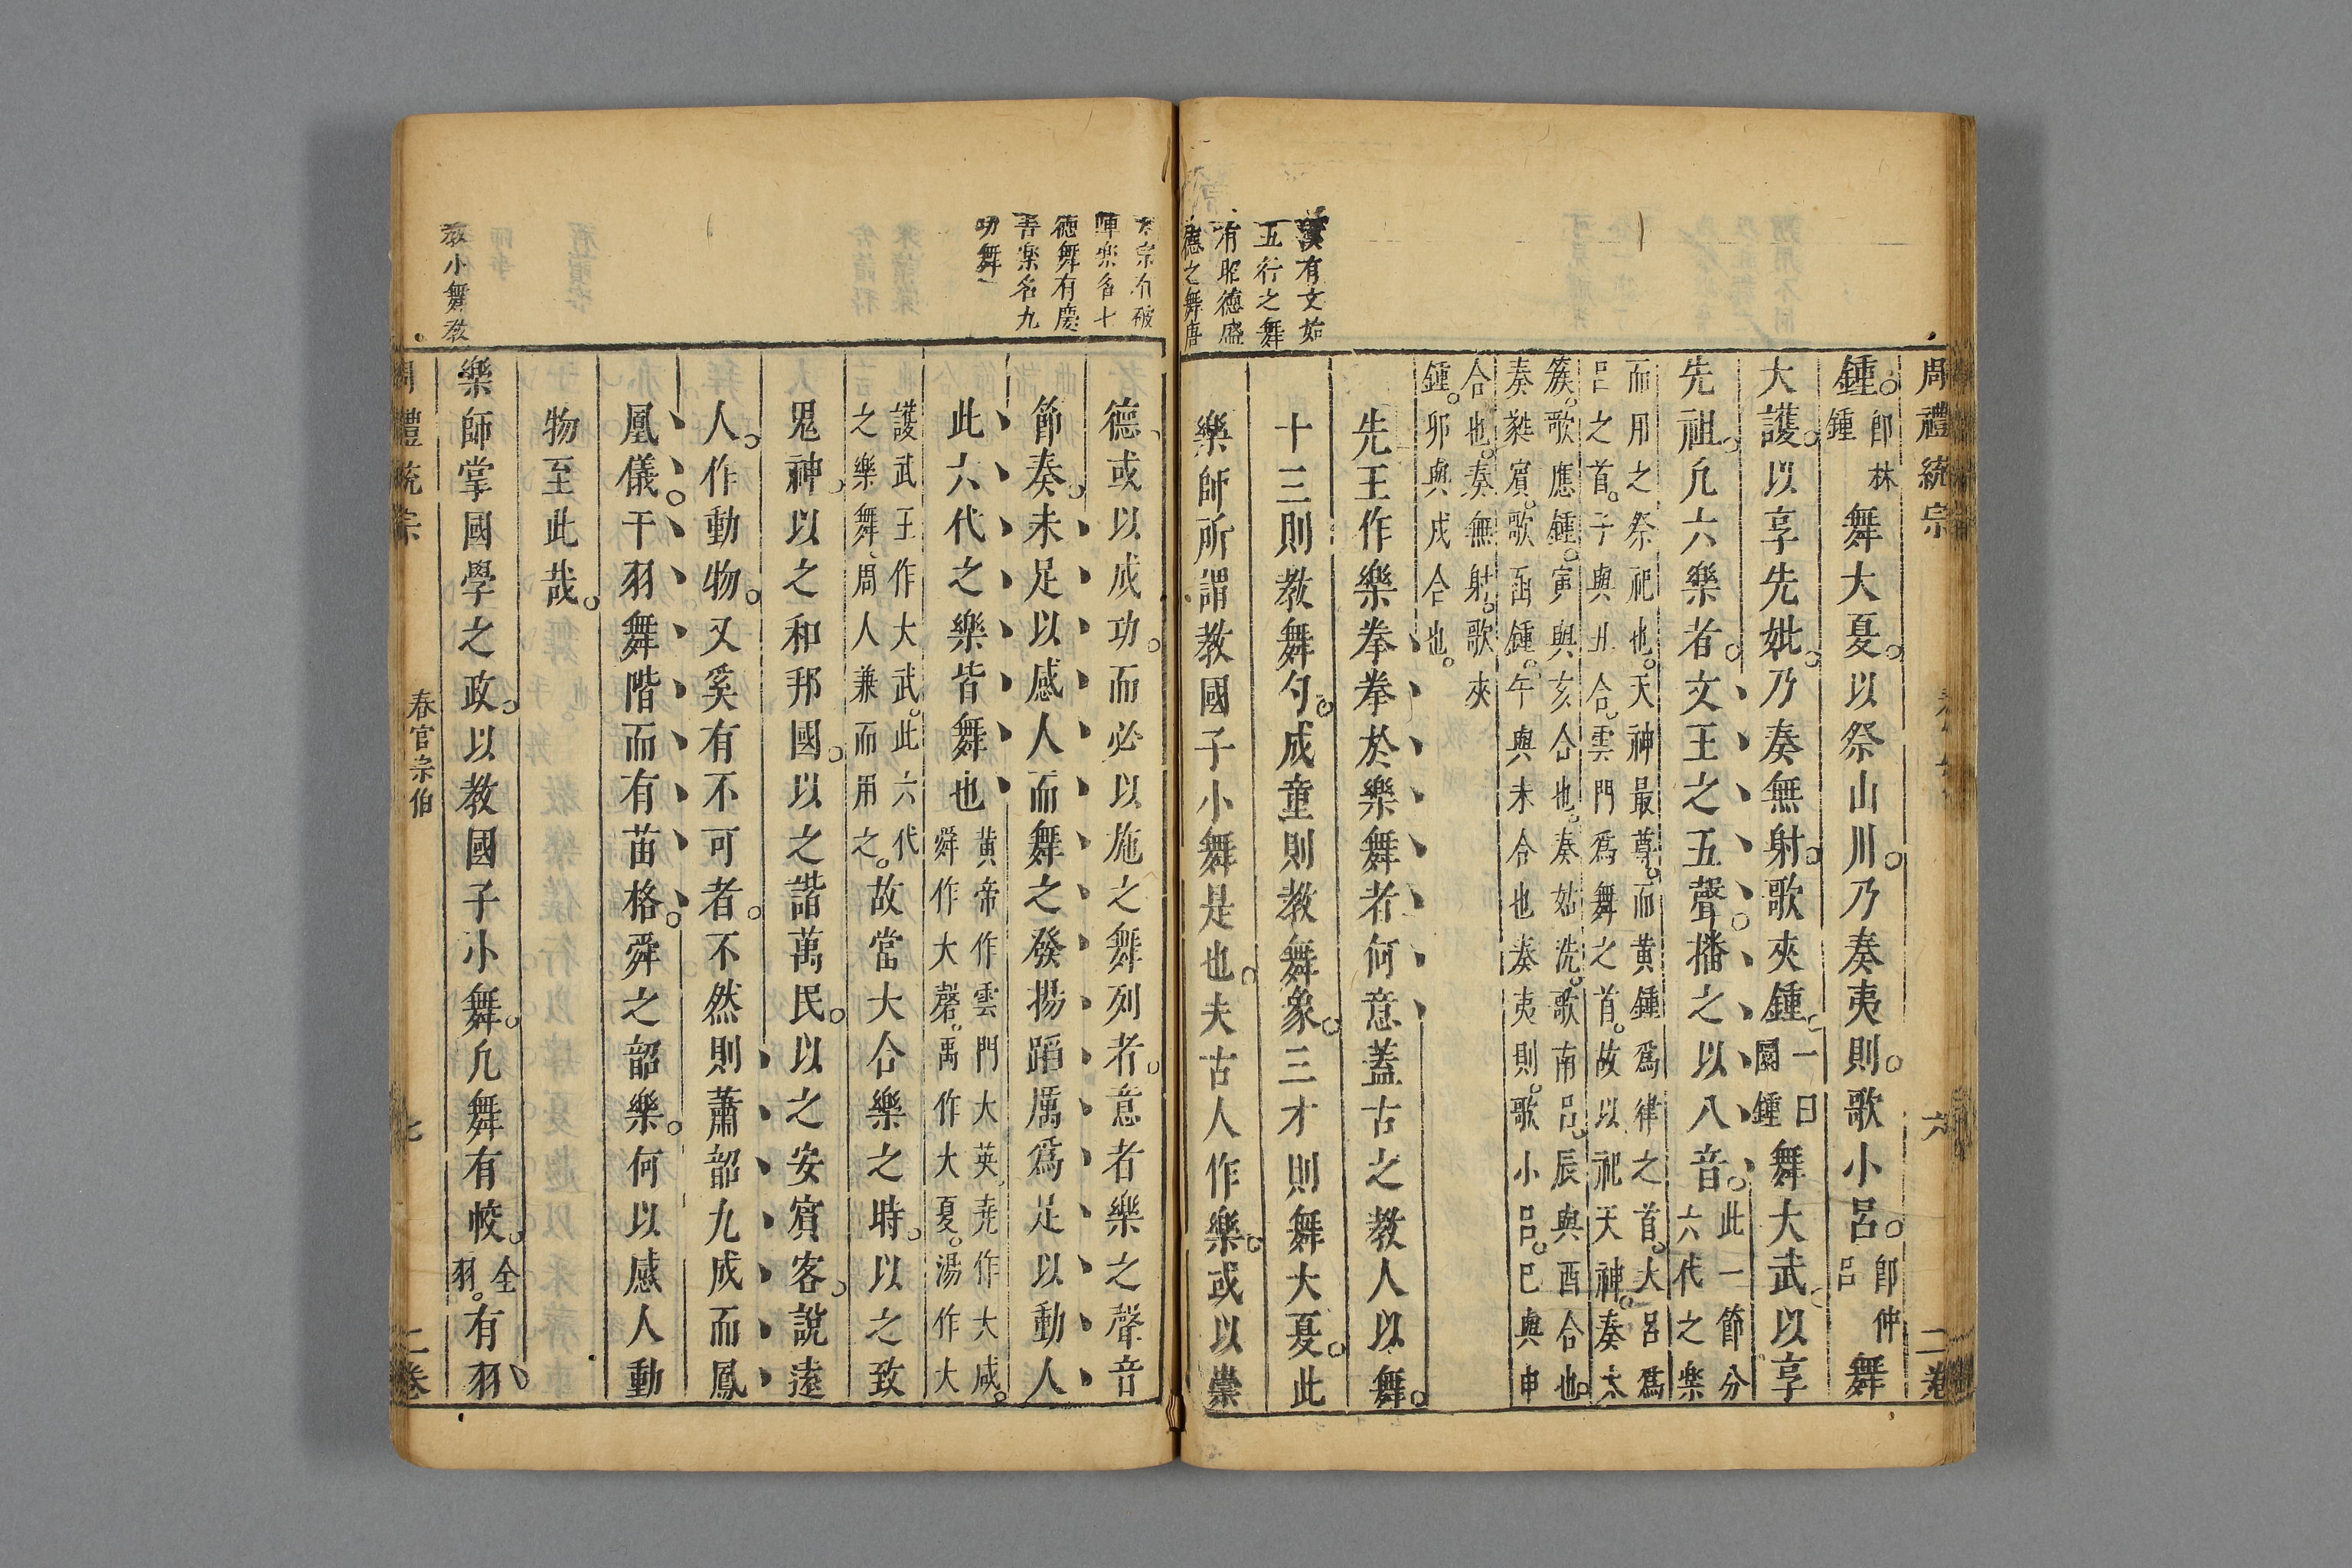 周禮統宗 六 二卷
鍾即林鍾舞大夏以祭山川乃奏夷則歌小呂即仲呂舞
大濩以享先妣乃奏無射歌夾鍾一曰圜鍾舞大武以享
先祖凡六樂者文王之五聲播之以八音此一節分六代之樂
而用之祭祀也天神最尊而黄鍾爲律之首大呂爲
呂之首子與丑合雲門爲舞之首故以祀天神奏太
簇歌應鍾寅與亥合也奏姑洗歌南呂辰與酉合也
奏蕤賓歌函鍾午與未合也奏夷則歌小呂巳與申
合也奏無射歌夾
鍾卯與戌合也
先王作樂拳拳於樂舞者何意蓋古之教人以舞
十三則教舞勺成童則教舞象三才則舞大夏此
樂師所謂教國子小舞是也夫古人作樂或以崇
漢有文始
五行之舞
有昭德盛
德之舞唐
太宗有破
陣樂名七
德舞有慶
善樂名九
功舞
德或以成功而必以施之舞列者意者樂之聲音
節奏未足以感人而舞之發揚蹈厲爲足以動人
此六代之樂皆舞也黄帝作雲門大英尭作大咸舜作大磬禹作大夏湯作大
濩武王作大武此六代之樂舞周人兼而用之故當大合樂之時以之致
鬼神以之和邦國以之諧萬民以之安賓客說遠
人作動物又奚有不可者不然則蕭韶九成而鳳
凰儀干羽舞階而有苗格舜之韶樂何以感人動
物至此哉
樂師掌國學之政以教國子小舞凡舞有帗全羽有羽
教小舞教
周禮統宗 春官宗伯 七 二卷